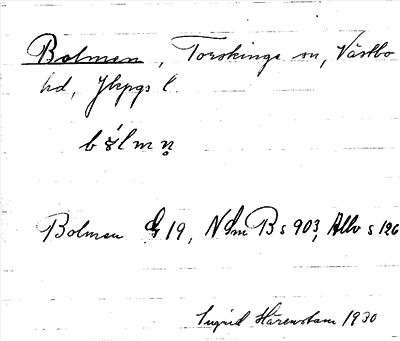 Bolmen, Torskinge sn, Västbo
hd, Jkpgs l.
Bolmen G 19, NSm B s 903, Allv s 196
Ingrid Härenstam 1930